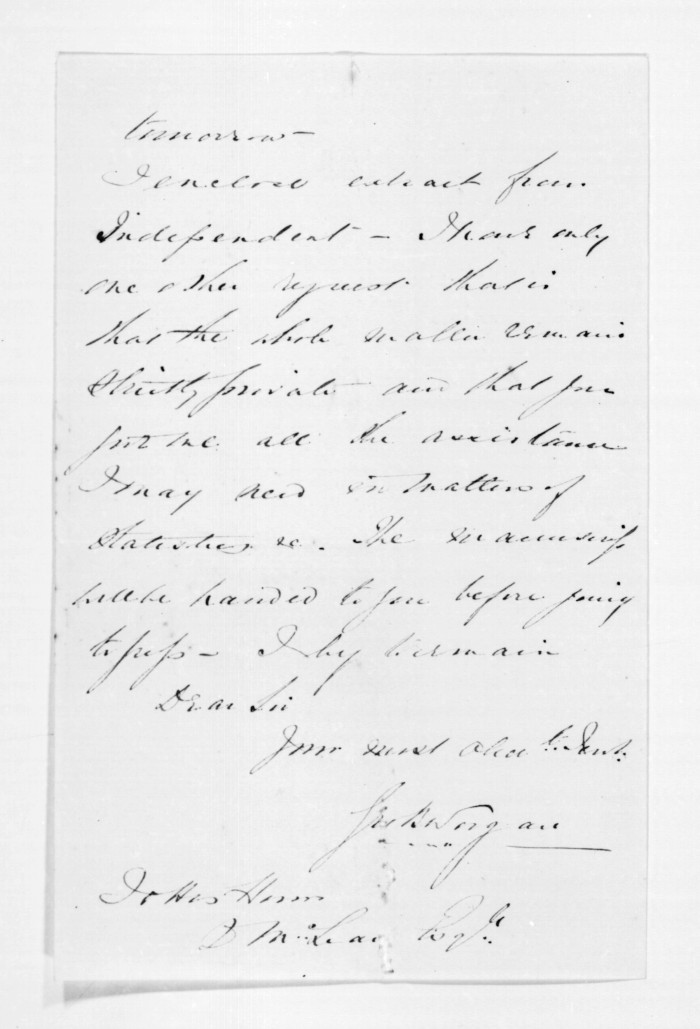 tomorrow –
I enclose extract from
Independent – I have only
one other request that is
that the whole matter remain
strictly private and that you
give me all the assistance
I may need in matters of
statistics &c. The manuscript
will be handed to you before going
to press – I beg to remain
Dear Sir
Your most obedt. Servt.
Worgan
To His Honor
D McLean Esqr.